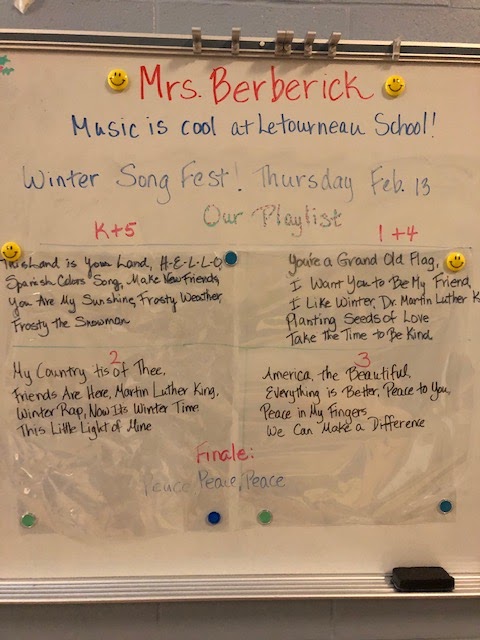 Mrs. Berberick
Music is cool at Letourneau School!
Winter Song Fest! Thursday Feb. 13
Our Playlist
K+5
This Land is Your Land, H-E-L-L-O,
Spanish Colors Song, Make New Friends,
You Are My Sunshine, Frosty Weather,
Frosty The Snowman
1+4
You're a Grand Old Flag,
I Want You to Be My Friend,
I Like Winter, Dr. Martin Luther K
Planting Seeds of Love
Take the Time to Be Kind.
2
My Country 'tis of Thee,
Friends Are Here, Martin Luther King,
Winter Rap, Now Its Winter Time
This Little Light of Mine
3
America, the Beautiful,
Everything is Better, Peace to You,
Peace in My Fingers
We Can Make a Difference
Finale:
Peace, Peace, Peace